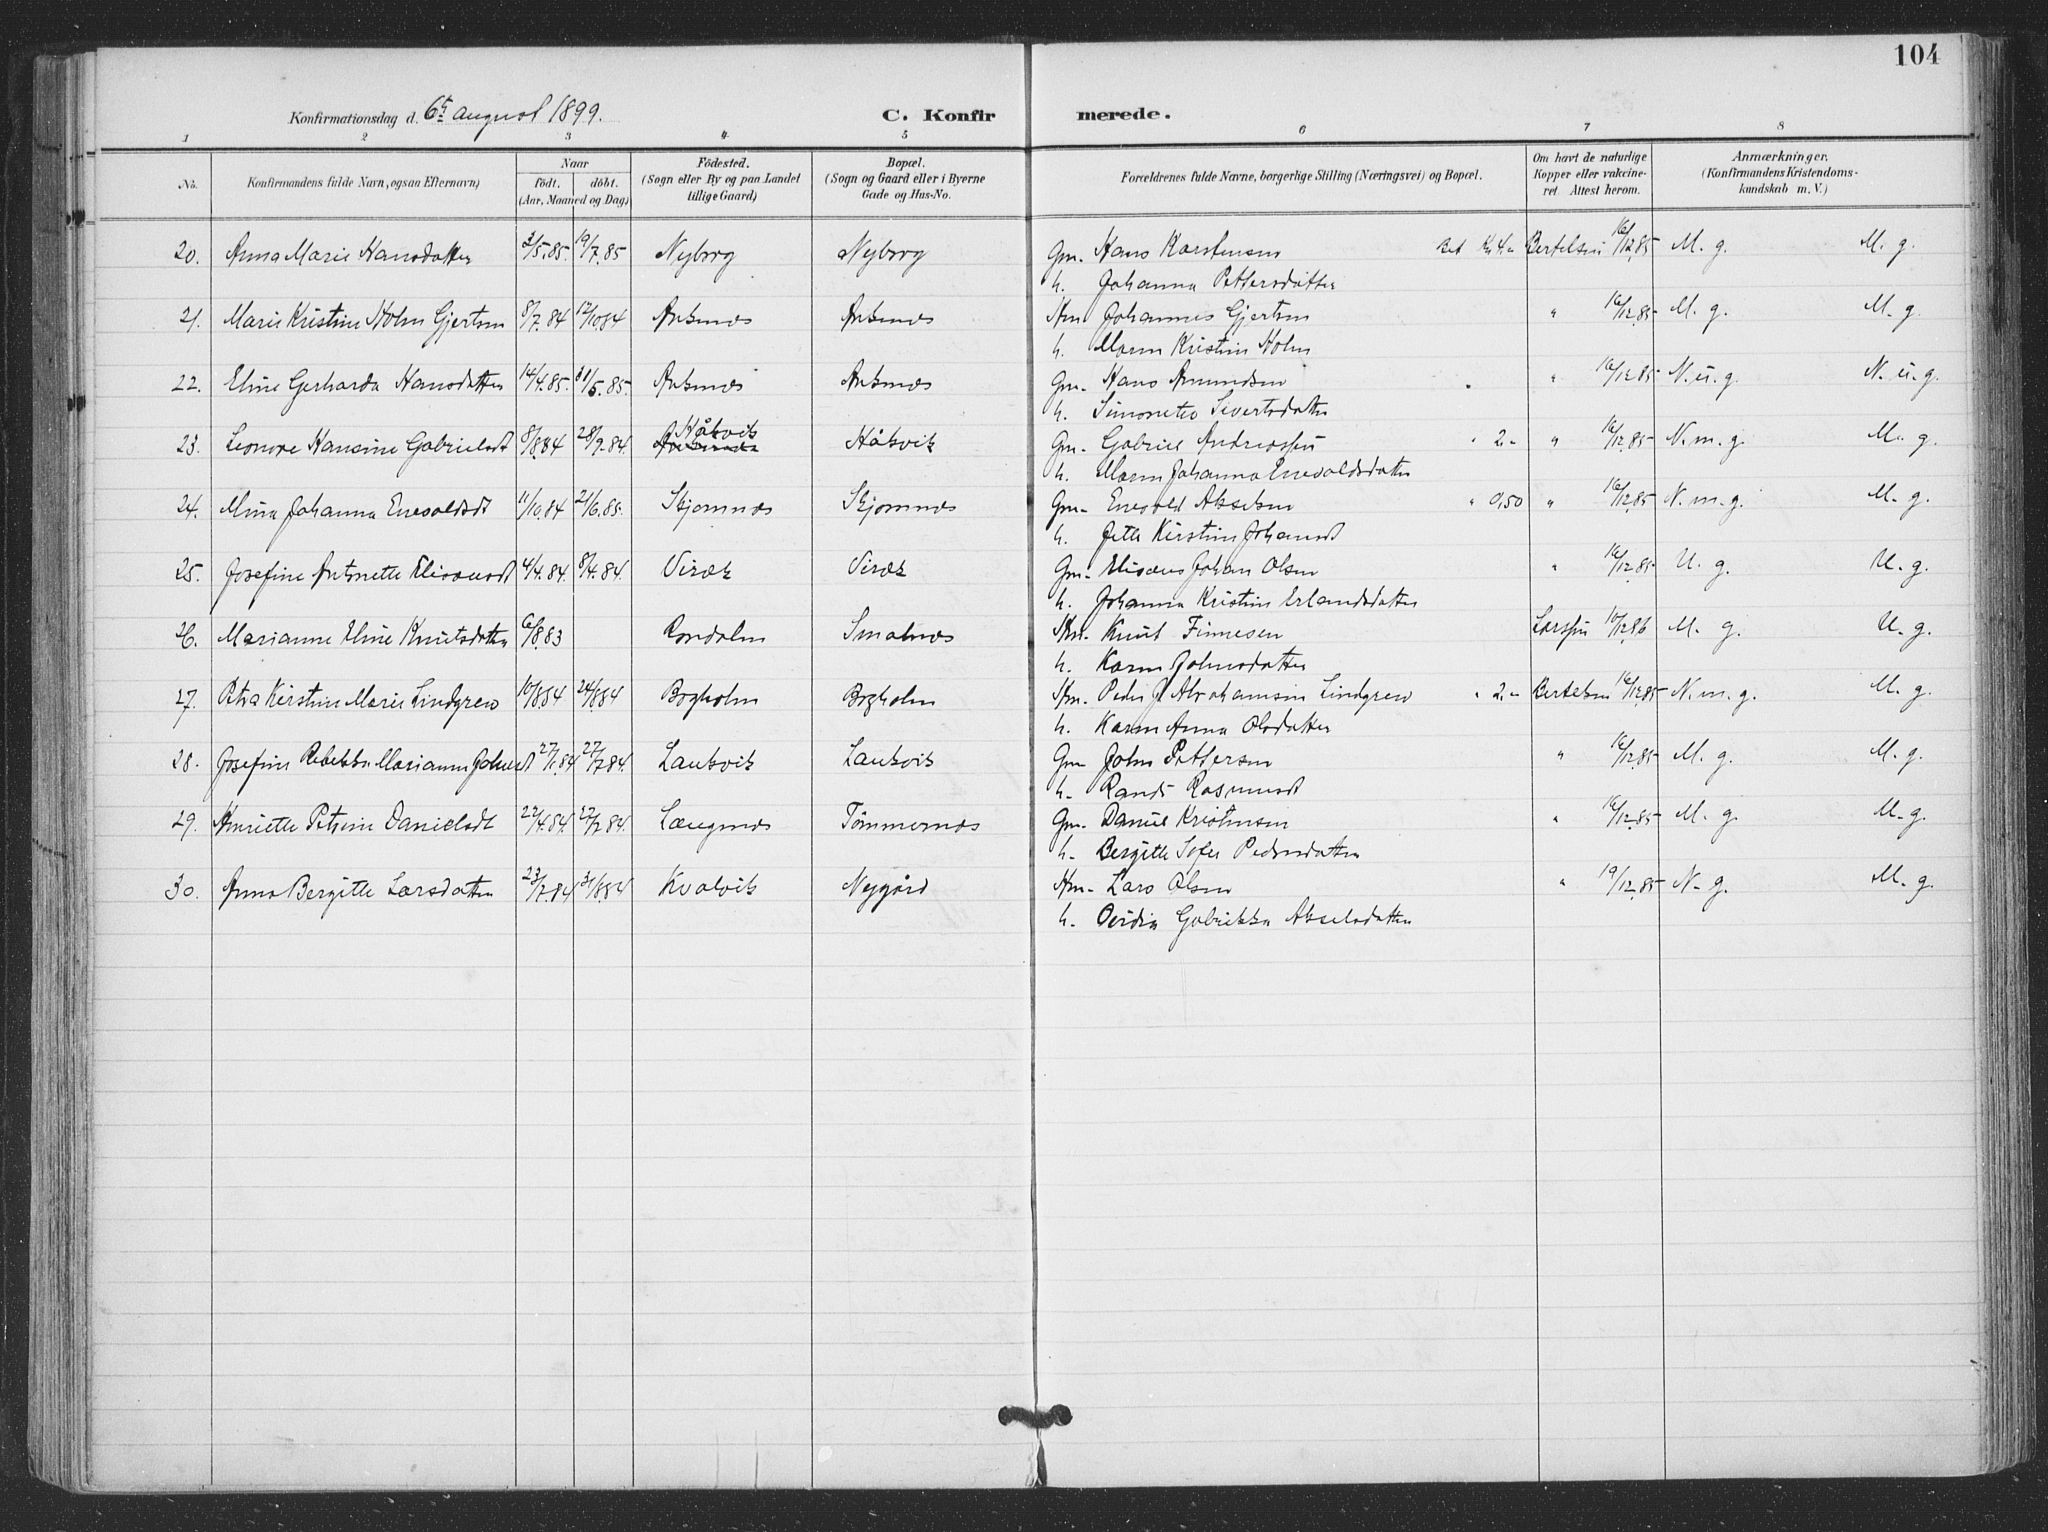 104
Konfirmationsdag d. 6te august 1899. C. Konfirmerede.
1 2 3 4 5 6 7 8
No. Konfirmandens fulde Navn, ogsaa Efternavn) Naar födt. döbt. (Aar, Maaned og Dag) Födested. (Sogn eller By og paa Landet tillige Gaard) Bopæl. (Sogn og Gaard eller i Byerne Gade og Hus-No. Forældrenes fulde Navne, borgerlige Stilling (Næringsvei) og Bopæl. Om havt de naturlige Kopper eller vakcineret Attest herom. Anmærkninger. (Konfirmandens Kristendomskundskab m. V.)
20. Anna Marie Hansdatter 3/5.85. 19/7.85 Nyborg Nyborg Gm. Hans Karstensen Bet Kr 4.- Bertelsen 16/12.85 M. g. M. g.
h. Johanna Pettersdatter
21. Marie Kristine Holm Gjertsen 8/7.84 12/10 84 Ankenes Ankenes Johannes Gjertsen " 16/12.85 M. g. M. g.
h. Maren Kristin Holm
22. Eline Gerharda Hansdatter 14/4.85. 31/5.85. Ankenes Ankenes Gm. Hans Amundsen " 16/12.85 N. u. g. N. u. g.
h. Simonette Sivertsdatter
23. Leonore Hansine Gabrielsdt 8/8.84 28/9.84. Håkvik Håkvik Gm. Gabriel Andreassen " 2.- " 16/12.85 N. m. g. M. g.
h. Maren Johanna Enevoldsdatter
24. Mina Johanna Enevoldsdt 11/10.84 21/6.85. Skjomnes Skjomnes Gm. Enevold Akselsen " 0,50 " 16/12.85 N. m. g. M. g.
h. Jette Kirstine Johansdt
25. Josefine Antonette Elisæusdt 4/4.84. 8/4.84. Virak Virak Gm. Elisæus Johan Olsen " 16/12.85 U. g. U. g.
h. Johanna Kristine Erlandsdatter
26. Marianne Eline Knutsdatter 6/8.83 Smalnes Knut Finnesen Larssen 10/12 86 M. g. U. g.
h. Karen Johnsdatter
27. Petra Kirstine Marie Lindgren 10/8.84 24/8.84 Borgholm Borgholm Peder J. Abrahamsen Lindgren " 2.- Bertelsen 16/12.85 N. m. g. M. g.
h. Karen Anna Olsdatter
28. Josefine Rebekka Marianne Johnsdt 27/1.84 27/7.84. Laukvik Laukvik Gm John Pettersen " 16/12.85 M. g. M. g.
h. Randi Rasmusdt
29. Henriette Petrine Danielsdt 22/4.84. 27/7.84. Længenes Tömmernes Gm. Daniel Kristensen " 16/12.85 M. g. M. g.
h. Bergitte Sofie Pedersdatter
30. Anna Bergitte Larsdatter 23/7.84 31/8.84 Kvalvik Nygård Lars Olsen " 19/12.85 N. g. M. g.
h. Ovidia Gabrikka Akselsdatter